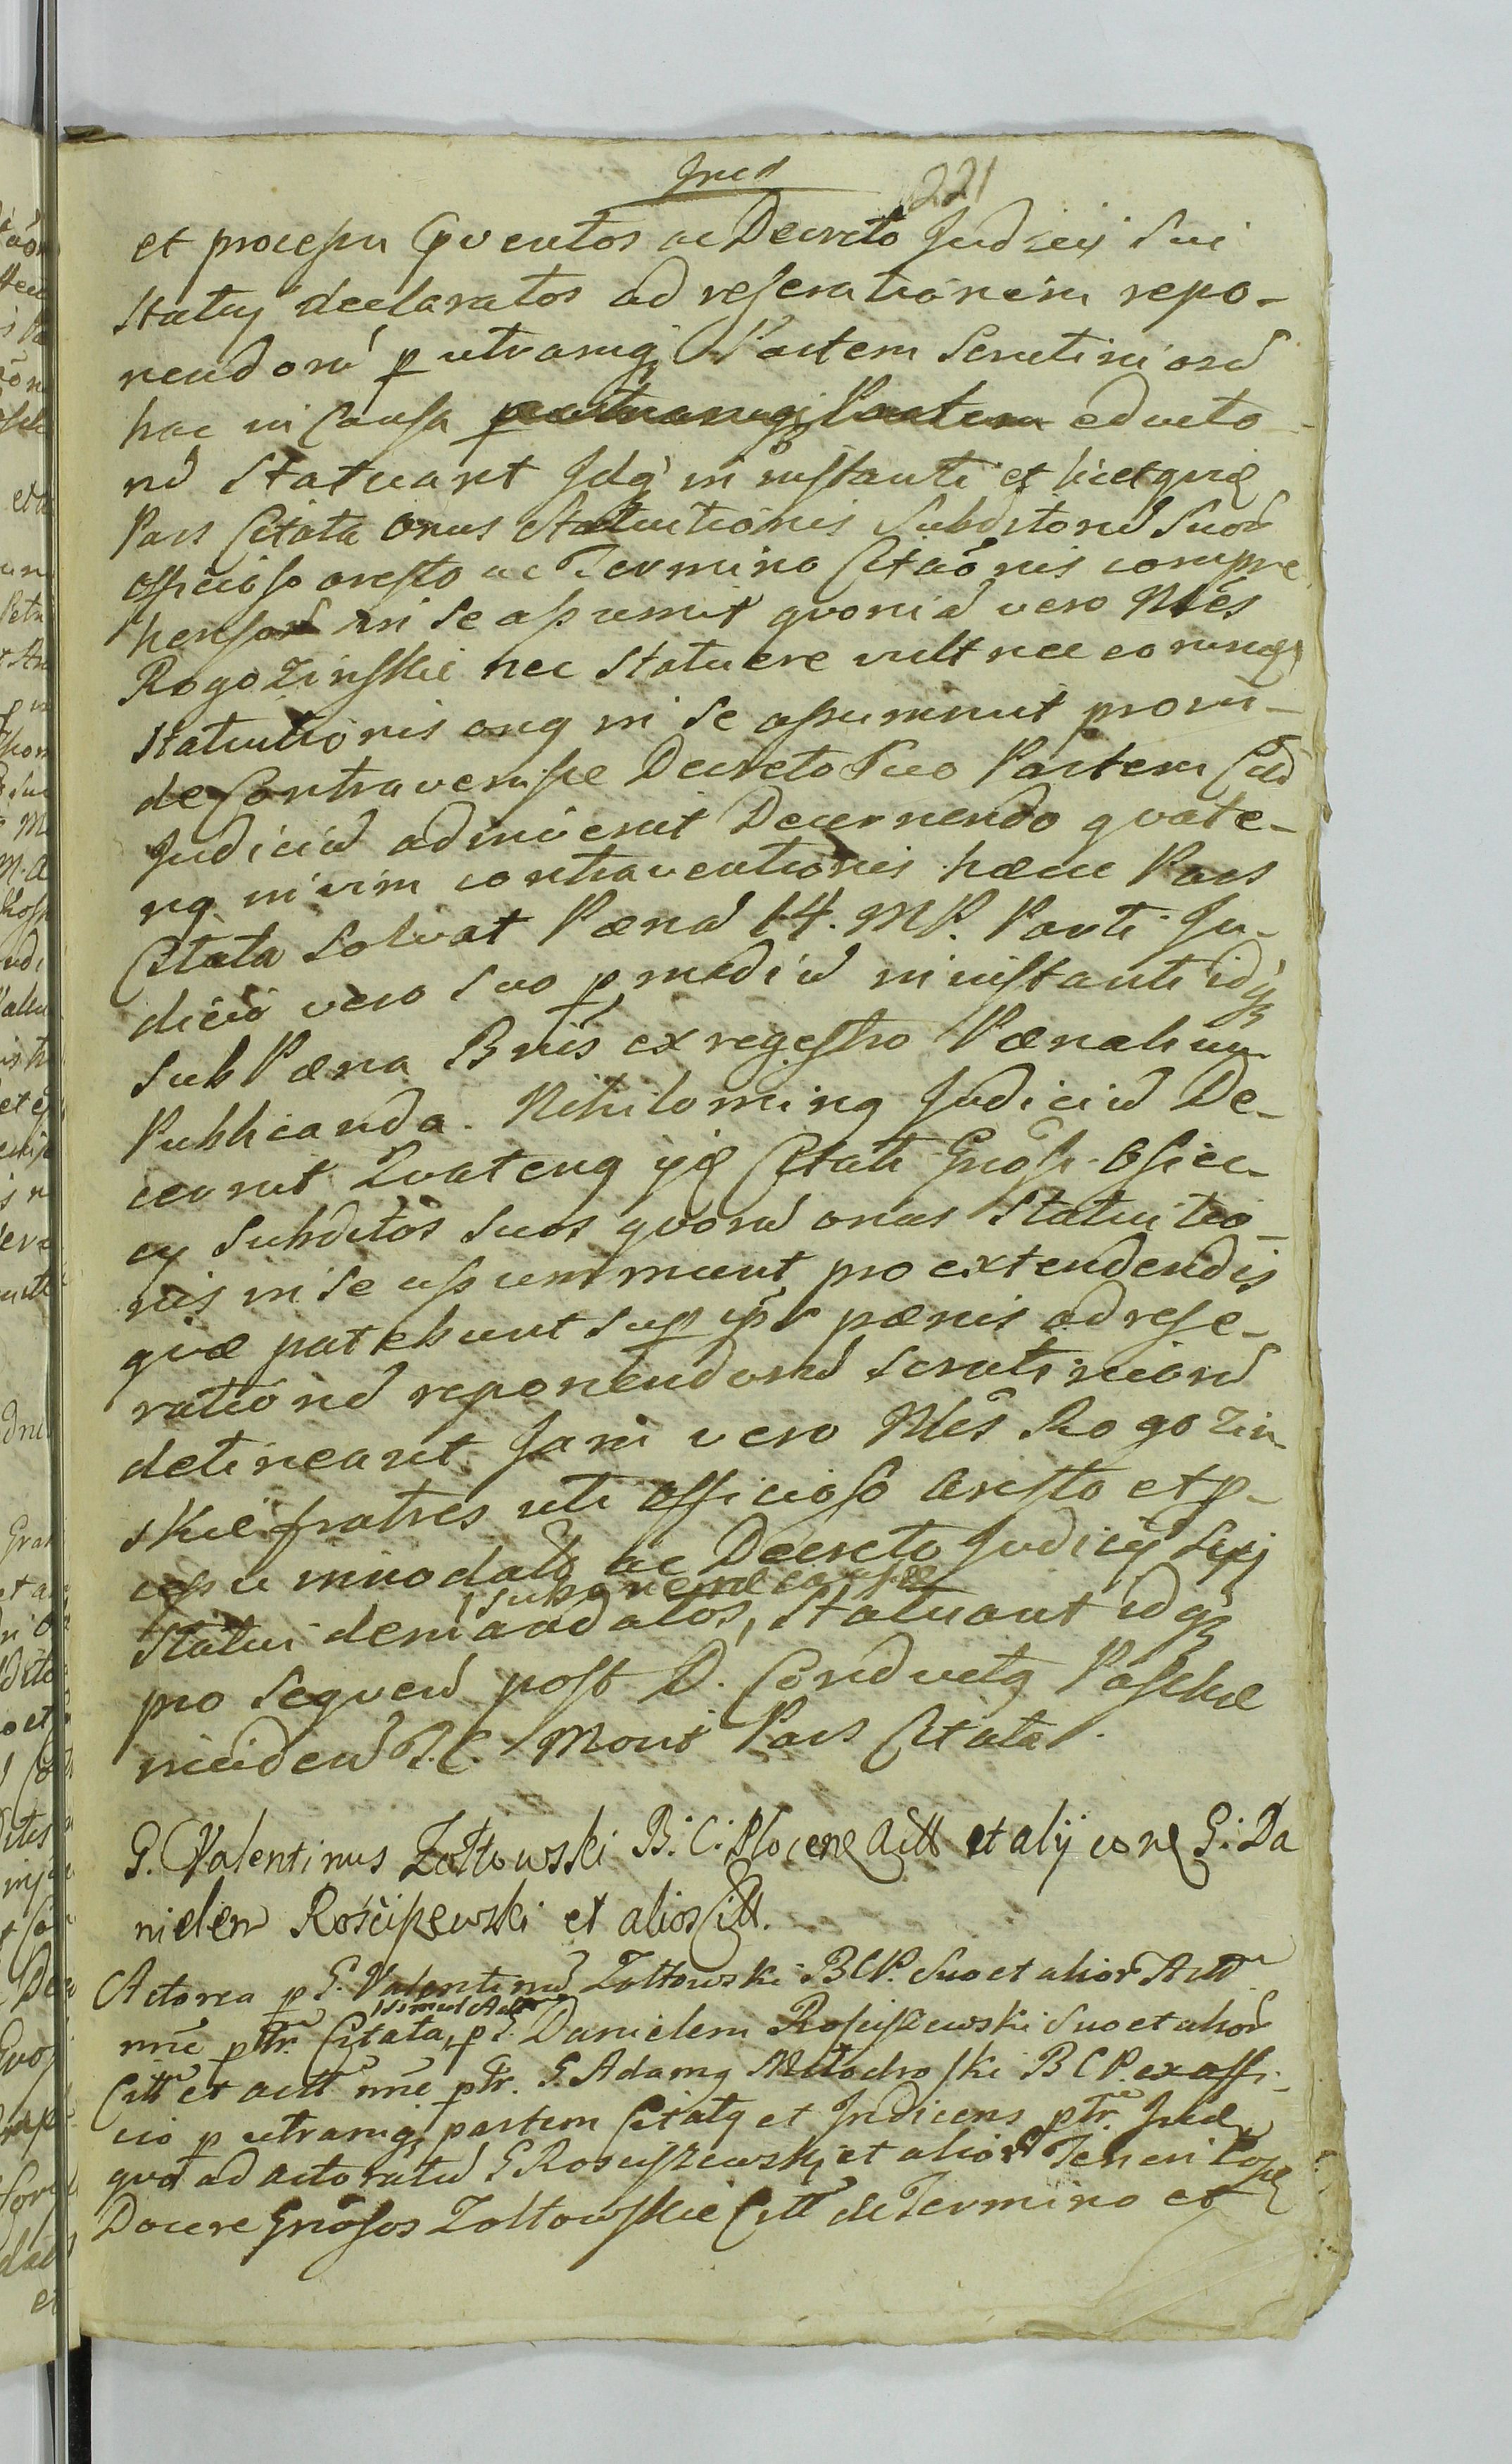 221
et processu Conventos ac Decreto Judicij Sui
Statuj declaratos ad reserationem repo-
nendorũ p utramq; Partem Scrutiniorũ
hac in Causa educto-
rũ Statuant Idq; in instanti et licet quid
Pars Citata onus Statuitionis Subditorũ Suor
officioso aresto ac Termino Citaõnis compre
hensorũ in se assumit quoniã vero Nbles
Rogozinskie nec Statuere vult nec eorumq;
Statuitionis onq in Se assummit proin-
de Contravenisse Decreto Suo Partem Citã
Judiciũ adinvenit Decernendo quate-
nq in vim contraventionis hæcce Pars
Citata Solvat Pænã 14. MP. Parti Ju-
dicio vero Suo p mediũ in instanti idq;
Sub Pæna Bnis ex regestro Pænalium
Publicanda. Nihilominq Judiciũ De-
cernit Quatenq ijd Citati Gnõsi Ossiec-
cy Subditos Suos quorũ onus Statuitio-
nis in Se assummunt pro extendendis
quæ patebunt Sup ipõs pænis ad rese-
rationẽ reponendorũ Scrutiniorũ
detineant Jam vero Nbles Rogozin-
skie fratres uti officioso Aresto et p-
cessu innodatõs ac Decreto Judicij Sui
Statui demandatos, Statuant idq;
pro Sequen post D. Conductq Paschæ
inciden T. C. Monit Pars Citata.
G. Valentinus Zółtowski B: C: Plocen Actt et alij con G: Da
nielem Rościszewski et alios Citt.
Actorea p G. Valentinũ Zołtowski BCP. Suo et alior Actt
nne ptr. Citata, simul Actr p G. Danielem Rosciszewski Suo et alior
Citt et actt nne ptr. G. Adamq Młodroski BCP. ex offi-
cio p utramq; partem Citatq et Indicens ptr. Jud
quod ad actoratũ G Rosciszewski et aliorũ Teneri Posse
Docere Gnõsos Zołtowskie Citt de Termino et